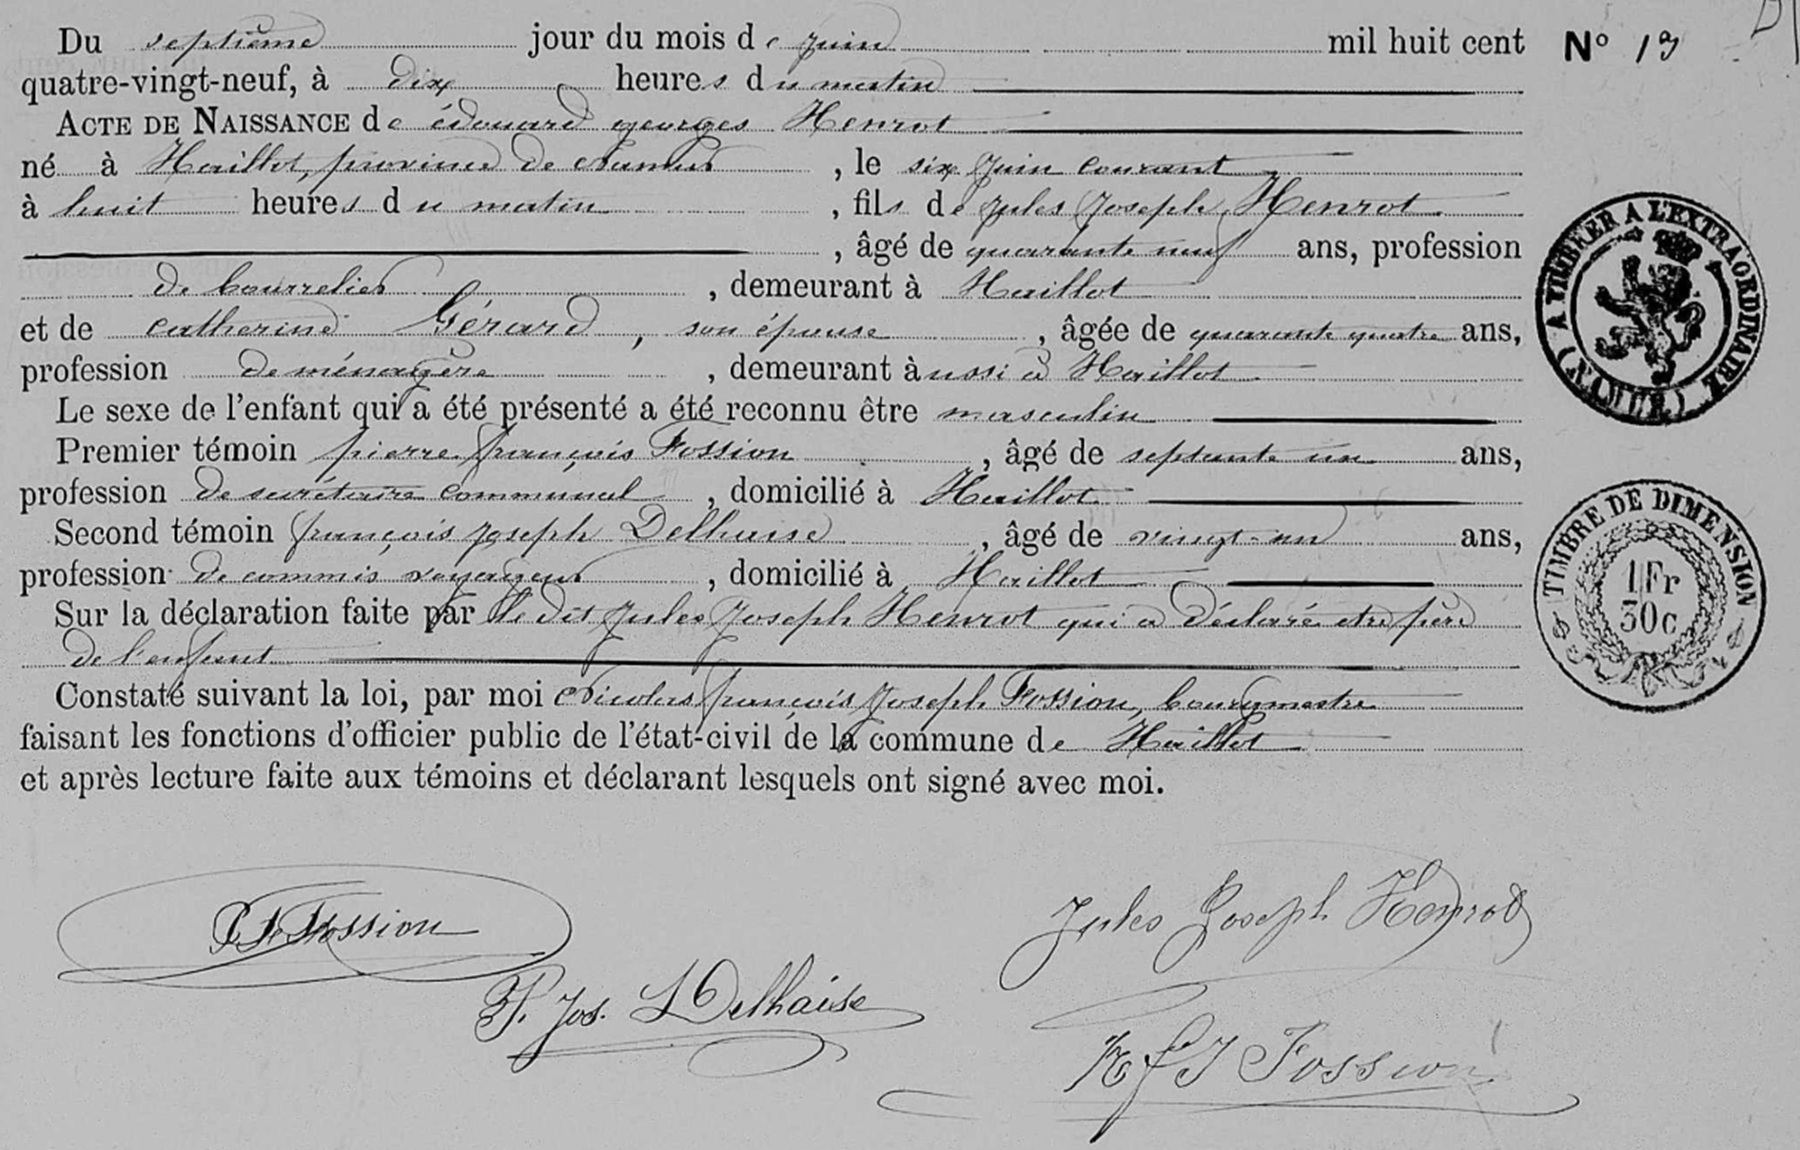 Du septième jour du mois de juin mil huit cent N° 13
quatre-vingt-neuf, à dix heures du matin
ACTE DE NAISSANCE de édouard georges Henrot
né à Haillot, province de Namur, le six juin courant
à huit heures du matin, fils de jules joseph Henrot
, âgé de quarante neuf ans, profession
de bourrelier, demeurant à Haillot
et de catherine Gérard, son épouse, âgée de quarante quatre ans,
profession de ménagère, demeurant aussi à Haillot
Le sexe de l'enfant qui a été présenté a été reconnu être masculin
Premier témoin pierre françois Fossion, âgé de septante un ans,
profession de secrétaire communal, domicilié à Haillot
Second témoin françois joseph Delhaise, âgé de vingt-un ans,
profession de commis voyageur, domicilié à Haillot
Sur la déclaration faite par le dit jules joseph Henrot qui a déclaré etre père
de l'enfant
Constaté suivant la loi, par moi Nicolas françois joseph Fossion, bourgmestre
faisant les fonctions d'officier public de l'état-civil de la commune de Haillot
et après lecture faite aux témoins et déclarant lesquels ont signé avec moi.
A TIMBRER A L'EXTRAORDINAIRE (NAMUR)
TIMBRE DE DIMENSION
1 Fr
30 c
Jules Joseph Henrot
P F Fossion
F. Jos. Delhaise
N f J Fossion